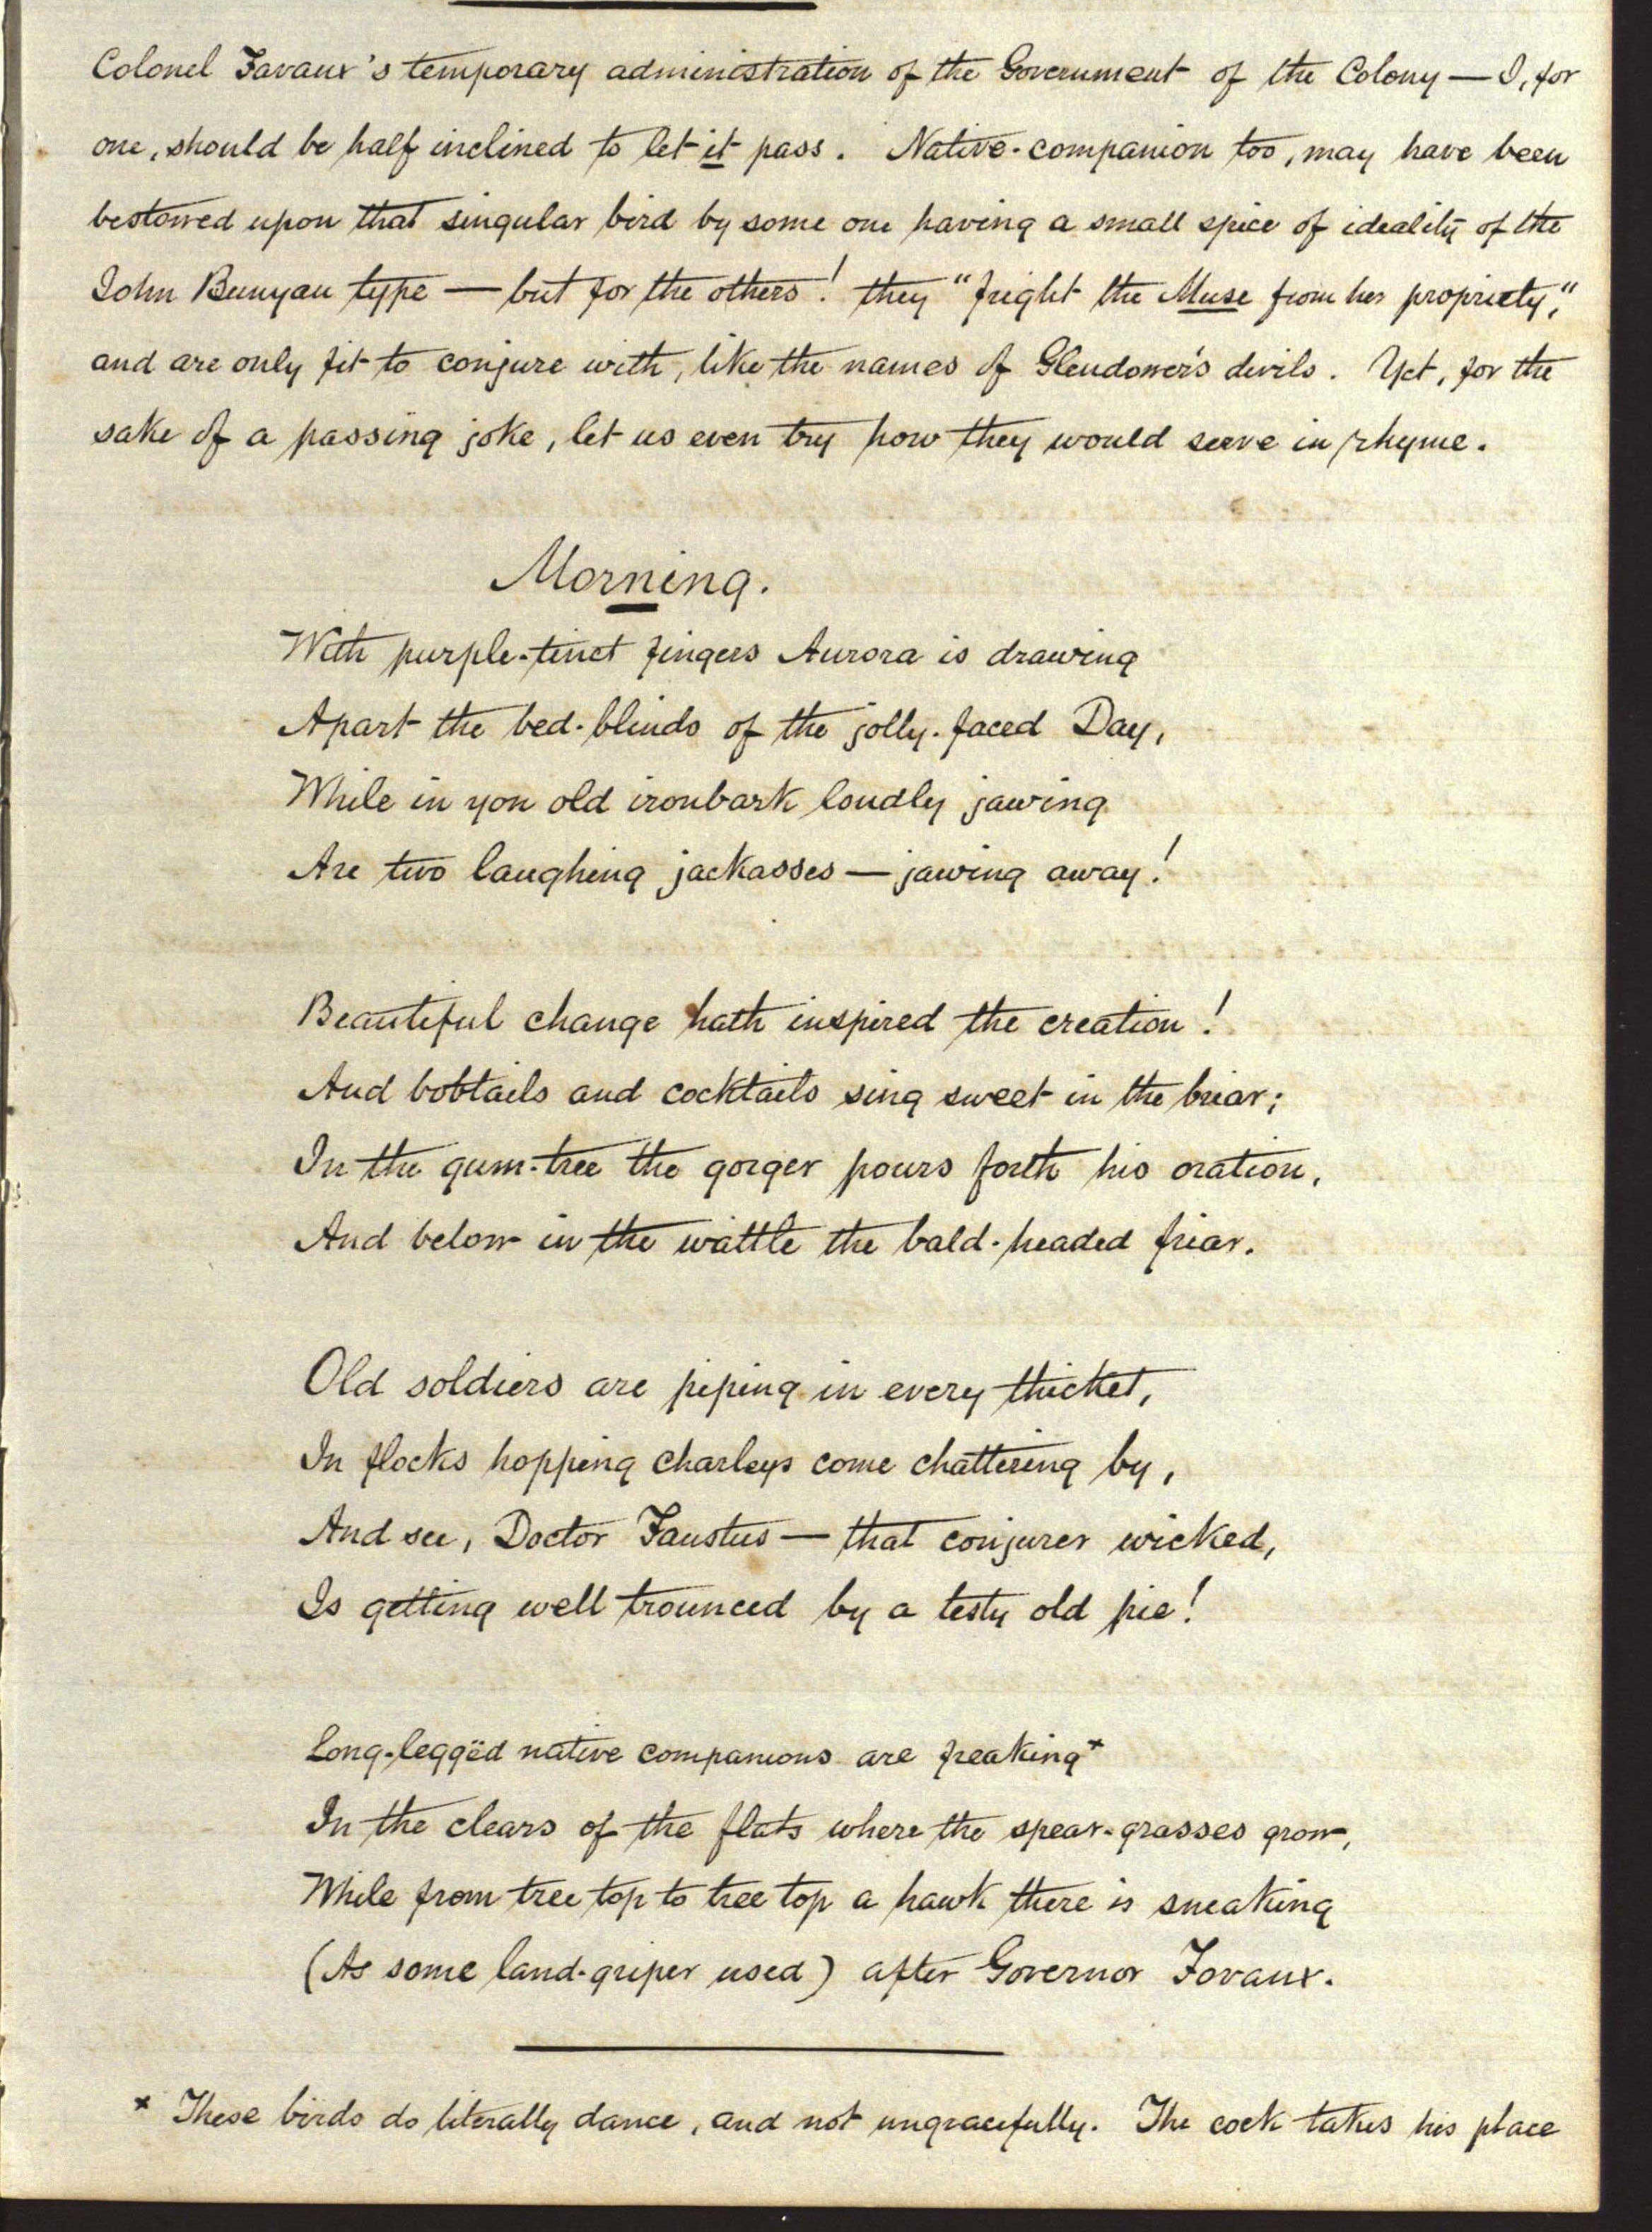 Colonel Favaux's temporary administration of the Government of the Colony — I, for
one, should be half inclined to let it pass. Native-companion too, may have been
bestowed upon that singular bird by some one having a small spice of ideality of the
John Bunyan type — but for the others! they "fright the Muse from her propriety,"
and are only fit to conjure with, like the names of Glendower's devils. Yet, for the
sake of a passing joke, let us even try how they would serve in rhyme.
Morning.
With purple-tinct fingers Aurora is drawing
Apart the bed-blinds of the jolly-faced Day,
While in yon old ironbark loudly jawing
Are two laughing jackasses — jawing away!
Beautiful change hath inspired the creation!
And bobtails and cocktails sing sweet in the briar;
In the gum-tree the gorger pours forth his oration,
And below in the wattle the bald-headed friar.
Old soldiers are piping in every thicket,
In flocks hopping charleys come chattering by,
And see, Doctor Faustus — that conjurer wicked,
Is getting well trounced by a testy old pie!
Long-leggëd native companions are freaking*
In the clears of the flats where the spear-grasses grow,
While from tree top to tree top a hawk there is sneaking
(As some land-griper used) after Governor Fovaux.
* These birds do literally dance, and not ungracefully. The cock takes his place